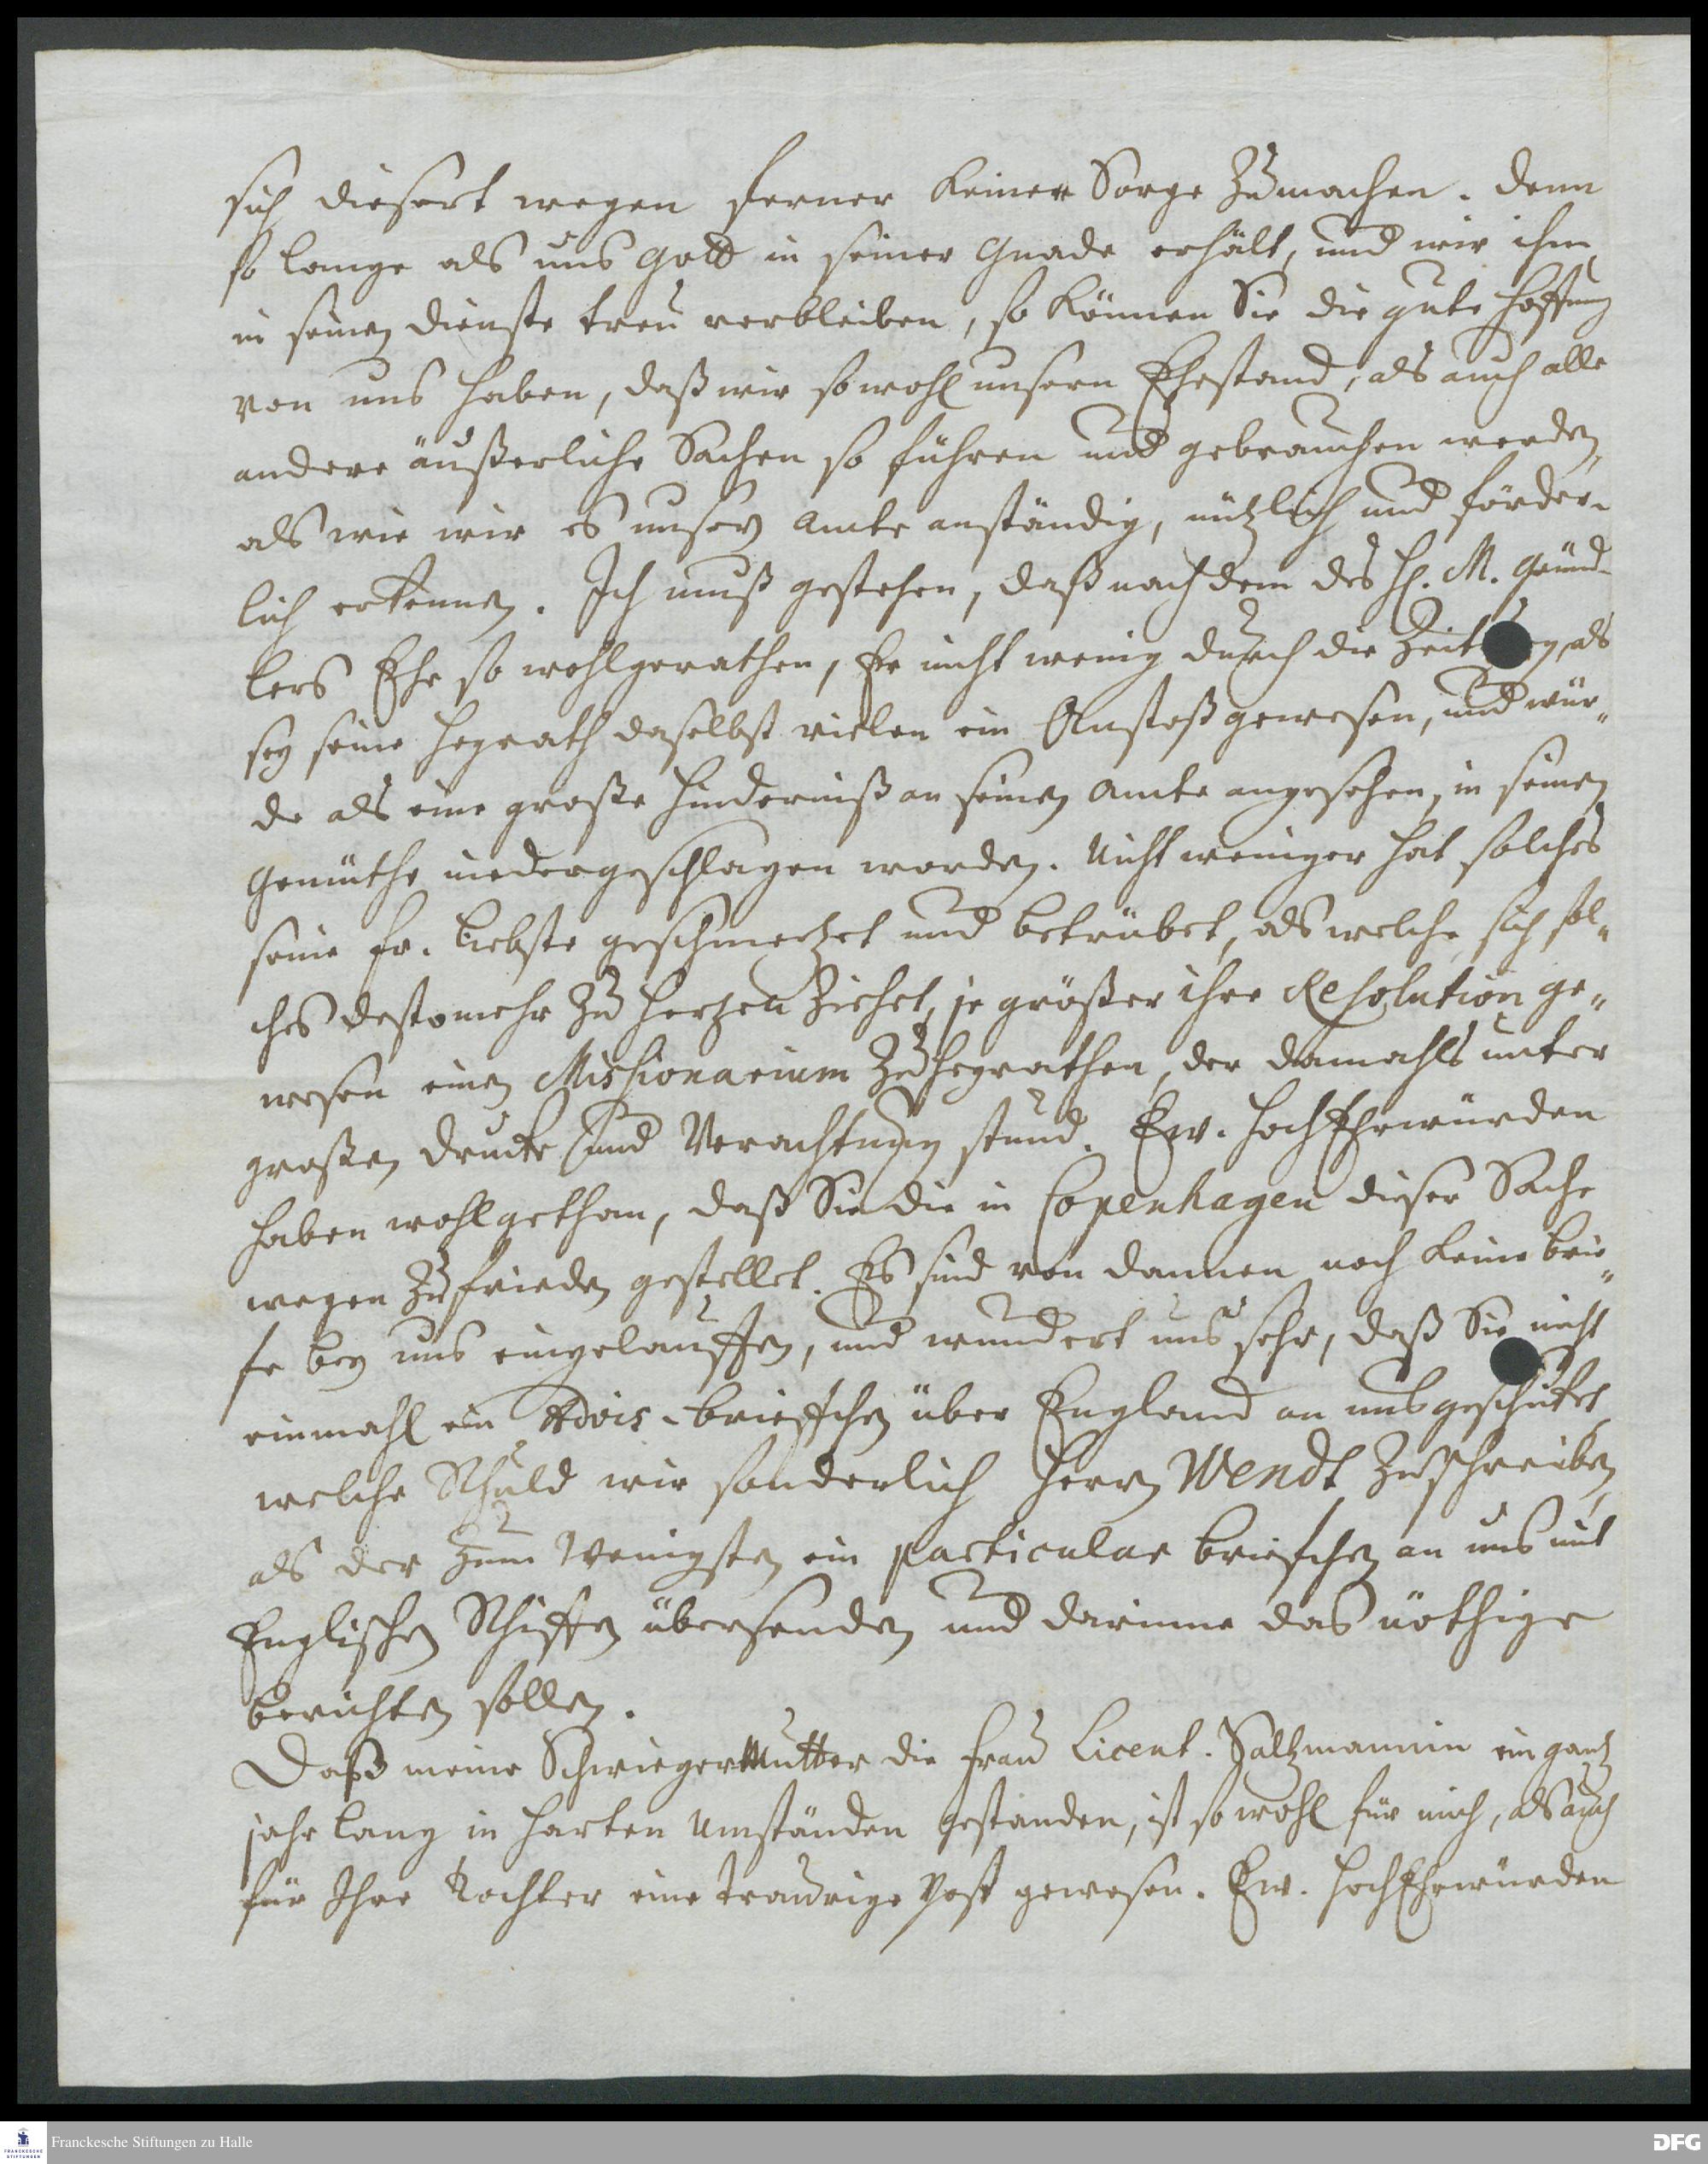 sich diesert wegen ferner keiner Sorge zumachen. Denn
so lange als uns Gott in seiner Gnade erhält, und wir ihm
in seinen Dienste treu verbleiben, so können Sie die gute Hoffnung
von uns haben, daß wir so wohl unsern Ehestand, als auch alle
andere äußerliche Sachen so führen und gebrauchen werden,
als wie wir es unsern Amte anständig, nützlich und förder-
lich erkennen. Ich muß gestehen, daß nach dem des H. M. Gründ-
lers Ehe so wohlgerathen, Er nicht wenig durch die Zeitung, als
sey seine Heyrath daselbst vielen ein Anstoß gewesen, und wür-
de als eine große Hinderniß an seinen Amte angesehen, in seinen
Gemüthe niedergeschlagen worden. Nicht weniger hat solches
seine Fr. Liebste geschmertzet und betrübet, als welche sich sol-
ches destomehr zu Hertzen ziehet, je größer ihre Resolution ge-
wesen einen Missionarium zuheyrathen, der damahls unter
großen Drucke und Verachtung stund. Ew. HochEhrwürden
haben wohlgethan, daß Sie die in Copenhagen dieser Sache
wegen zufrieden gestellet. Es sind von dannen noch keine brie-
fe bey uns eingelauffen, und wundert uns sehr, daß Sie nicht
einmahl ein Advis-brieffchen über England an uns geschicket,
welche Schuld wir sonderlich Herrn Wendt zuschreiben,
als der zum Wenigsten ein particular briefchen an uns mit
Englischen Schiffen übersenden und darinne das nöthige
berichten sollen.
Daß meine SchwiegerMutter die Frau Licent. Saltzmannin ein gantz
jahr lang in harten Umständen gestanden, ist so wohl für mich, als auch
für Ihre Tochter eine traurige Post gewesen. Ew. HochEhrwürden
Franckesche Stiftungen zu Halle
FRANCKESCHE STIFTUNGEN
DFG